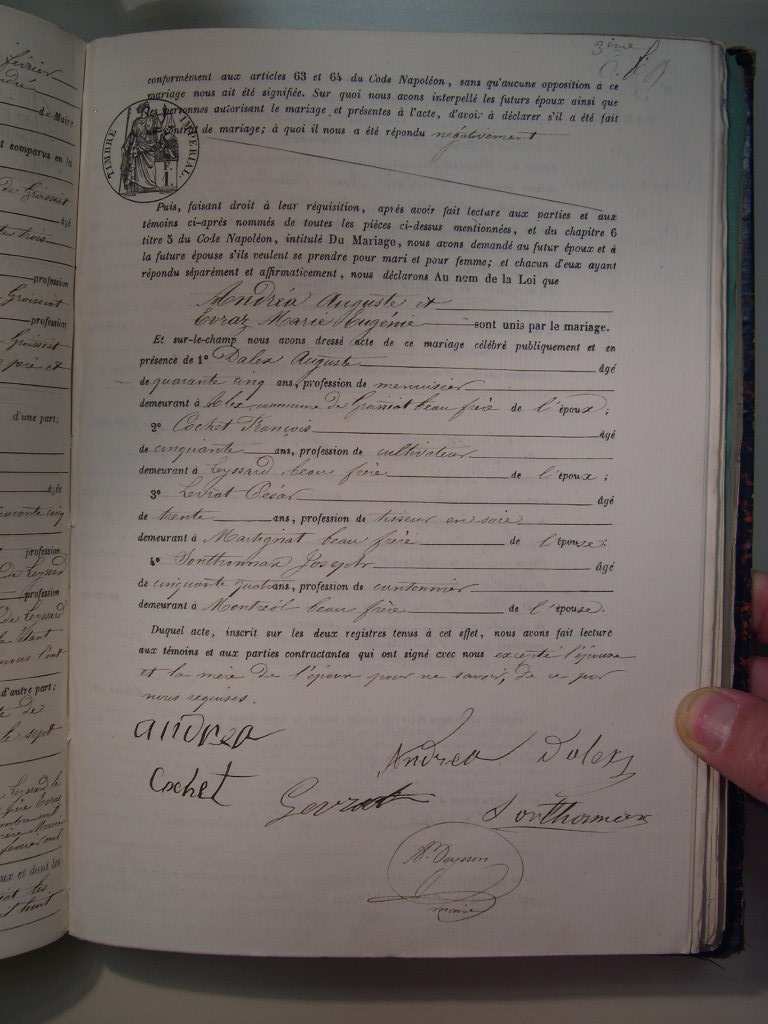 3ème
conformément aux articles 63 et 64 du Code Napoléon, sans qu'aucune opposition à ce
mariage nous ait été signifiée. Sur quoi nous avons interpellé les futurs époux ainsi que
les personnes autorisant le mariage et présentes à l'acte, d'avoir à déclarer s'il a été fait
contrat de mariage; à quoi il nous a été répondu négativement
TIMBRE IMPÉRIAL
Puis, faisant droit à leur réquisition, après avoir fait lecture aux parties et aux
témoins ci-après nommés de toutes les pièces ci-dessus mentionnées, et du chapitre 6
titre 5 du Code Napoléon, intitulé Du Mariage, nous avons demandé au futur époux et à
la future épouse s'ils veulent se prendre pour mari et pour femme; et chacun d'eux ayant
répondu séparément et affirmativement, nous déclarons Au nom de la Loi que
Andréa Auguste et
Evraz Marie Eugénie sont unis par le mariage.
Et sur-le-champ nous avons dressé acte de ce mariage célébré publiquement et en
présence de 1° Dalex Auguste âgé
de quarante cinq ans, profession de menuisier
demeurant à Alex commune de Groissiat beau frère de l'époux;
2° Cochet François âgé
de cinquante ans, profession de cultivateur
demeurant à Leyssard beau frère de l'époux;
3° Levrat César âgé
de trente ans, profession de tisseur en soie
demeurant à Martignat beau frère de l'épouse;
4° Sonthonnax Joseph âgé
de cinquante quatre ans, profession de cantonnier
demeurant à Montréal beau frère de l'épouse.
Duquel acte, inscrit sur les deux registres tenus à cet effet, nous avons fait lecture
aux témoins et aux parties contractantes qui ont signé avec nous excepté l'épouse
et la mère de l'époux pour ne savoir, de ce par
nous requises.
andrea
Andrea Dalex
Cochet
Levrat
Sonthonnax
maire
février
de Maire
et comparus en la
âgé
profession
Groissiat
profession
d'une part;
âgé
profession
de Leyssard
profession
de Leyssard
d'autre part;
le sept